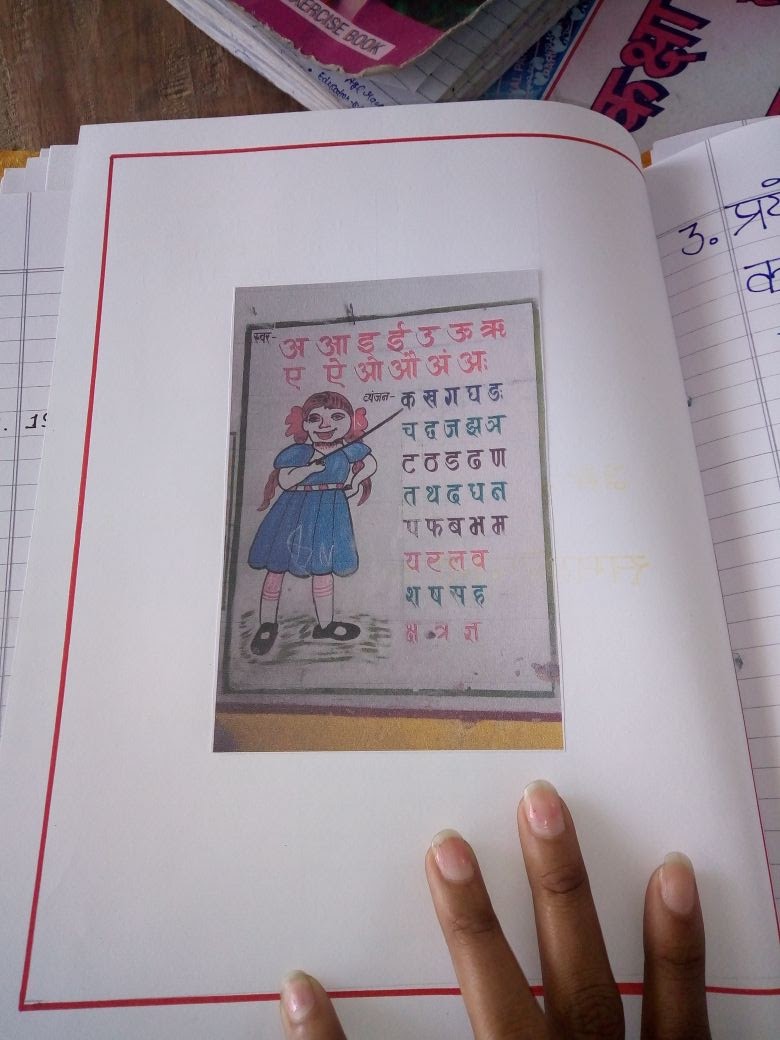 EXERCISE BOOK
कक्षा
3. प्र
क
स्वर- अ आ इ ई उ ऊ ऋ
ए ऐ ओ औ अं अः
व्यंजन- क ख ग घ ङ
च छ ज झ ञ
ट ठ ड ढ ण
त थ द ध न
प फ ब भ म
य र ल व
श ष स ह
क्ष त्र ज्ञ